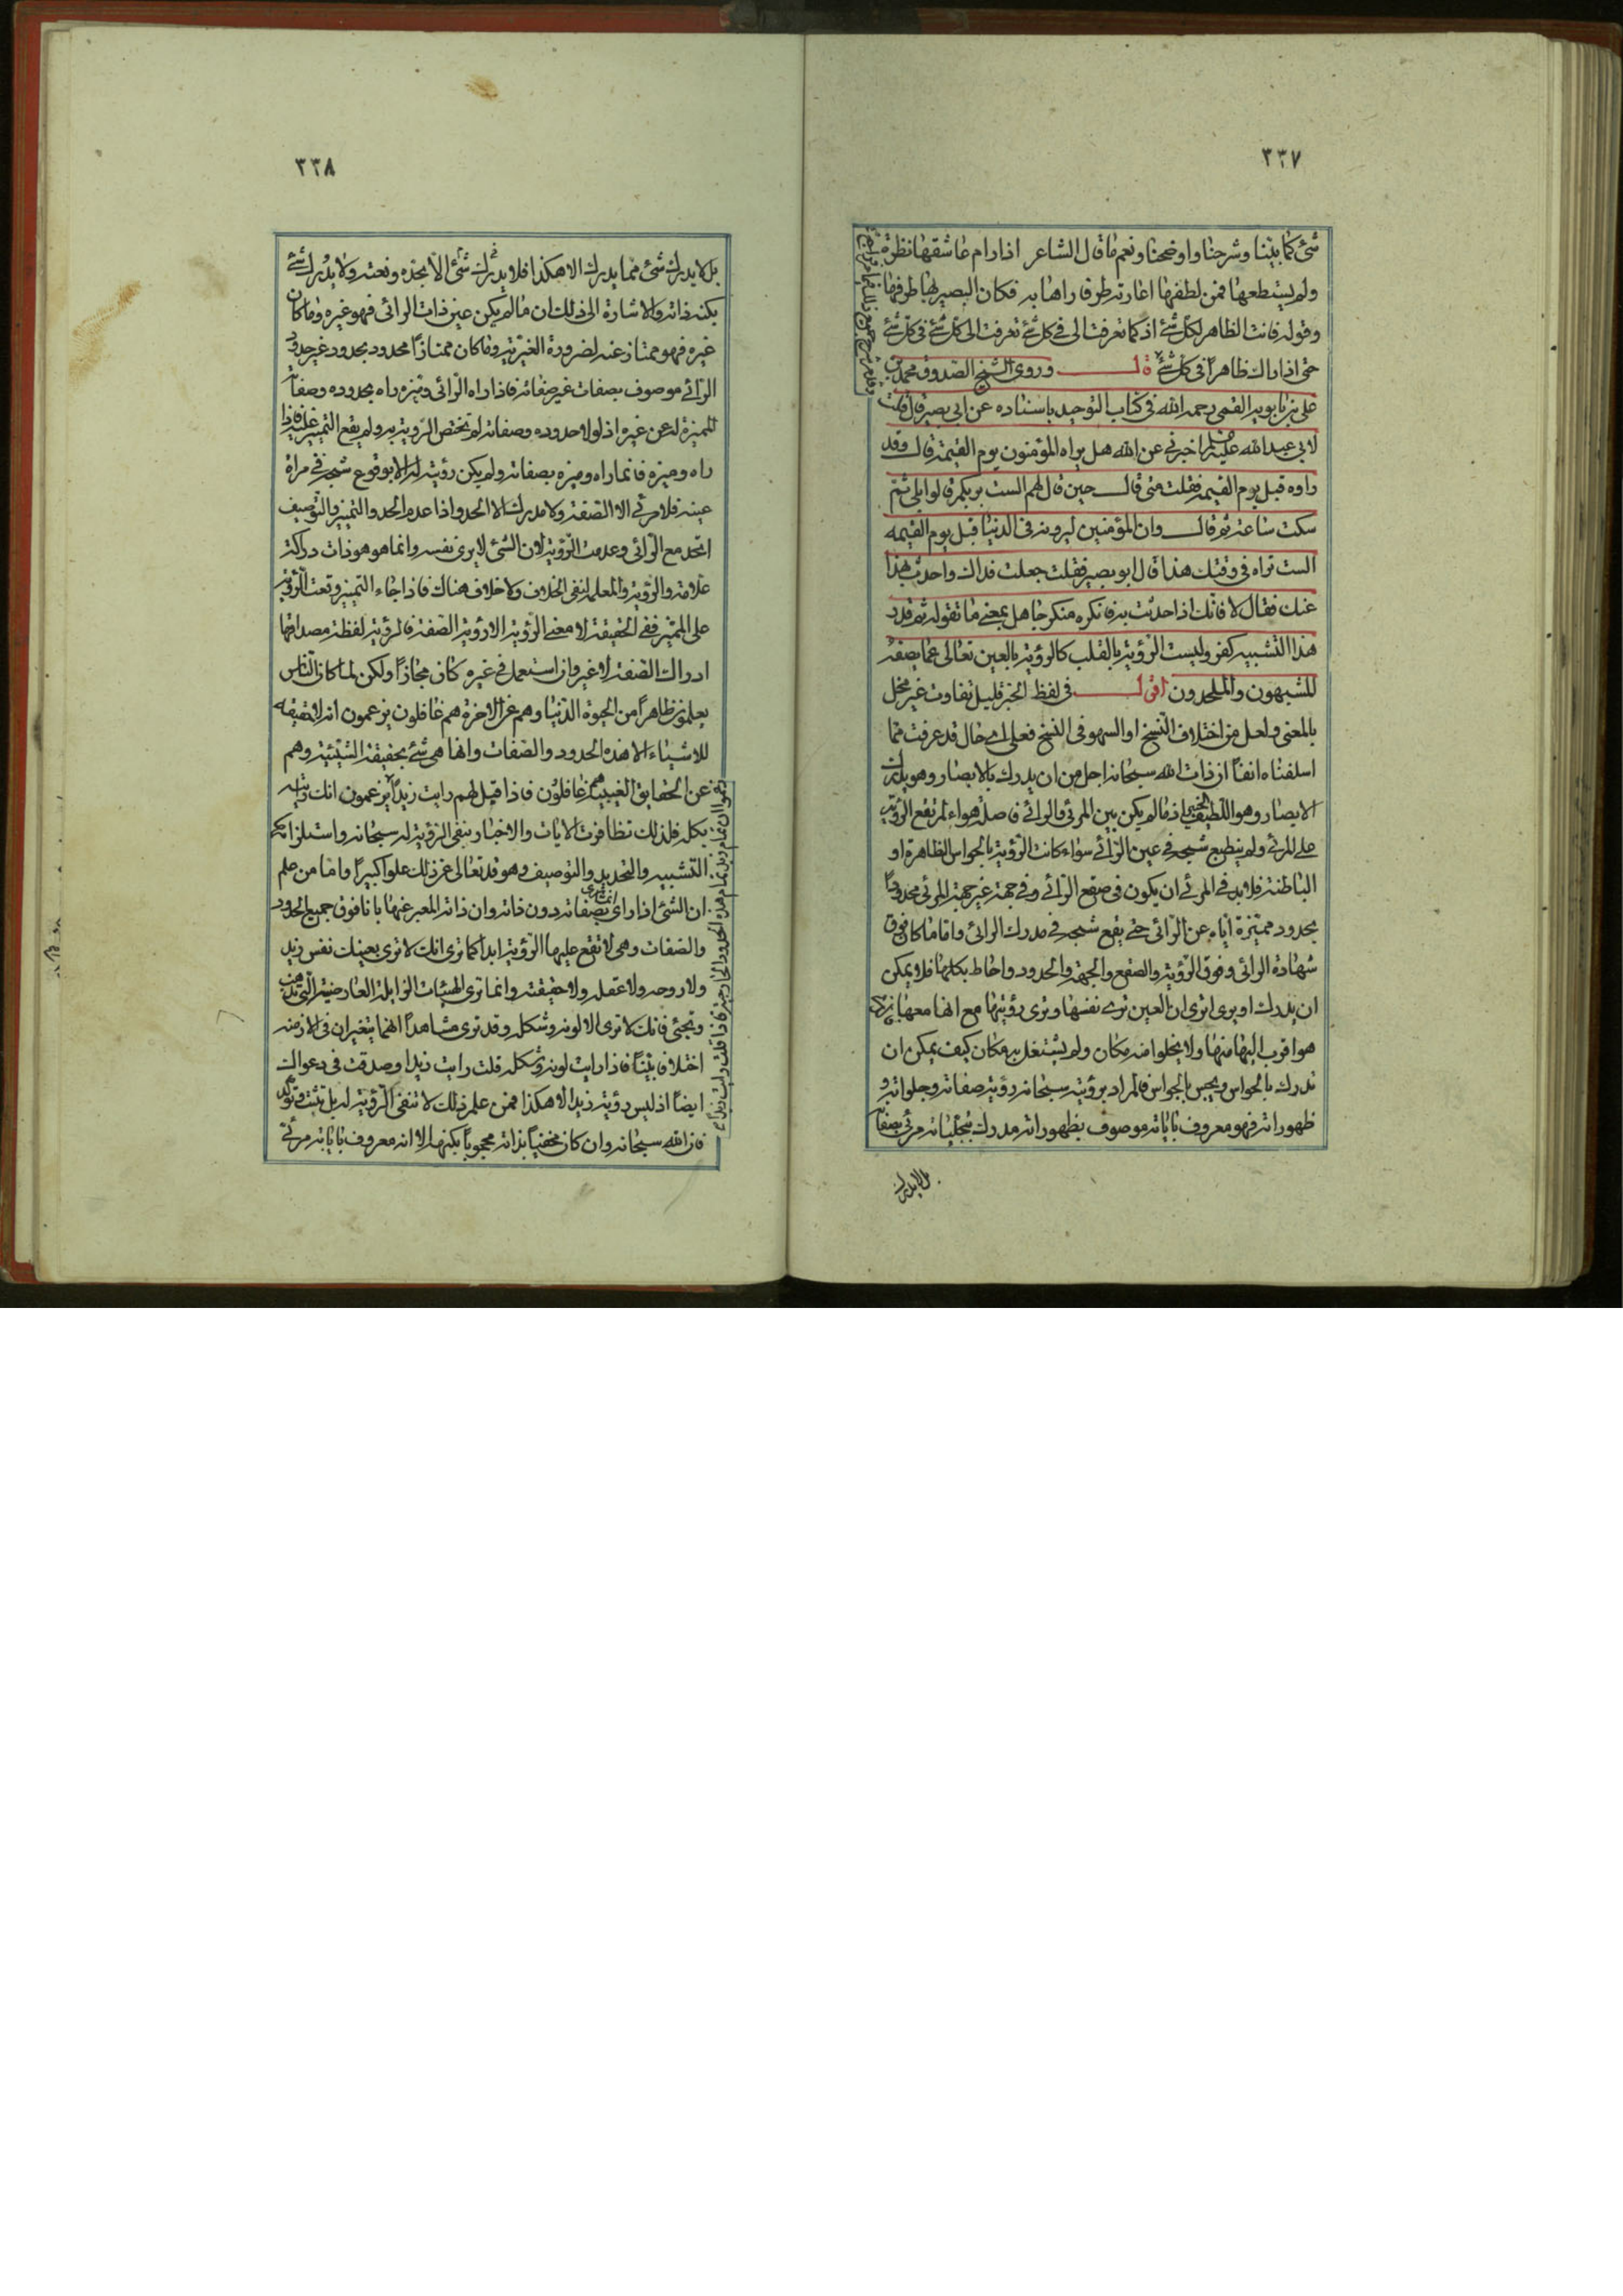 ٣٣٧
شئ كما بيّنا وشرحنا واوضحنا ونعم ما قال الشاعر اذا رام عاشقها نظرة
ولم يستطعها فمن لطفها اعارته طرفا راها به فكان البصير لها طرفها
وقوله فانت الظاهر لكل شئ اذ كما تعرفت الى فى كل شئ تعرفت الى كل شئ فى كل شئ
حتى اذا راك ظاهراً فى كل شئ قال وروى الشيخ الصدوق محمد بن
على بن بابويه القمى رحمه الله فى كتاب التوحيد باسناده عن ابى بصير قال قلت
لابى عبدالله عليه السلم اخبرنى عن الله هل يراه المؤمنون يوم القيمة قال وقد
راوه قبل يوم القيمة فقلت متى قال حين قال لهم الست بربكم قالوا بلى ثم
سكت ساعة ثم قال وان المؤمنين ليرونه فى الدنيا قبل يوم القيمه
الست تراه فى وقتك هذا قال ابو بصير فقلت جعلت فداك واحدث بهذا
عنك فقال لا فانك اذا حدثت به فانكره منكر جاهل بمعنى ما تقوله ثم قدر
هذا التشبيه كفر وليست الرؤية بالقلب كالرؤية بالعين تعالى عما يصفه
المشبهون والملحدون اقول فى لفظ الخبر قليل تفاوت غير مخل
بالمعنى ولعل من اختلاف النسخ او السهو فى النسخ فعلى اى حال قد عرفت مما
اسلفناه انفاً ان ذات الله سبحانه اجل من ان يدرك بالابصار وهو يدرك
الابصار وهو اللطيف الخبير اذ ما لم يكن بين المرئى والرائى فاصلة هواء لم تقع الرؤية
على المرئى ولم ينطبع شبحه فى عين الرائى سواء كانت الرؤية بالحواس الظاهرة او
الباطنة فلا بد فى المرئى ان يكون فى صقع الرائى وفى جهة غير جهة المرئى محدوداً
بحدود مميّزة اياه عن الرائى حتى يقع شبحه فى مدرك الرائى واما ما كان فوق
شهادة الرائى وفوق الرؤية والصقع والجهة والحدود واحاط بكلها فلا يمكن
ان يدرك او يرى اترى ان العين ترى نفسها وترى رؤيتها مع انها معها
هو اقرب اليها منها ولا يخلوا منه مكان ولم يشتغل به مكان كيف يمكن ان
تدرك بالحواس ويجس بالجواس فالمراد برؤيته سبحانه رؤية صفاته وجلواته و
ظهوراته فهو معروف باياته موصوف بظهوراته مدرك بتجلياته مرئى بصفاته
بل لا يدرك
٣٣٨
بل لا يدرك شئ مما يدرك الا هكذا فلا يدرك شئ الا بحدّه ونعته ولا يدرك شئ
بكنه ذاته والاشارة الى ذلك ان ما لم يكن عين ذات الرائى فهو غيره وما كان
غيره فهو ممتاز عنه لضرورة الغيريّة وما كان ممتازاً محدود بحدود غير حدود
الرائى موصوف بصفات غير صفاته فاذا راه الرائى وميّزه راه بحدوده وصفاته
المميزة له عن غيره اذ لولا حدوده وصفاته لم تختص الرؤية به ولم يقع التميز عليه فاذا
راه وميزه فانما راه وميزه بصفاته ولم يكن رؤيته له الا بوقوع شبحه فى مراة
عينه فلا مرئى الا الصفة ولا مدرك الا الحد واذا عدم الحد والتميز والتوصيف
اتحد مع الرائى وعدمت الرؤية لان الشئ لا يرى نفسه وانما هو هو ذات دراكة
علامة والرؤية والمعلم لنفى الخلاف ولا خلاف هناك فاذا جاء التميز وقعت الرؤية
على المميّز ففى الحقيقة لا معنى للرؤية الا رؤية الصفة فالرؤية لفظة مصداقها
ادراك الصفة لا غير وان استعمل فى غيره كان مجازاً ولكن لما كان الناس
يعلمون ظاهراً من الحيوة الدنيا وهم عن الاخرة هم غافلون يزعمون انه لا حقيقه
للاشياء الا هذه الحدود والصفات وانها هى شئ بحقيقة الشيئية وهم
عن الحقايق الغيبية هم غافلون فاذا قيل لهم رايت زيداً يزعمون انك رايته
بكله فلذلك تظافرت الايات والاخبار بنفى الرؤية له سبحانه واستلزامه
التشبيه والتحديد والتوصيف وهو قد تعالى عن ذلك علوا كبيراً واما من علم
ان الشئ اذا راى انما يرى بصفاته دون ذاته وان ذاته المعبر عنها بانا فوق جميع الحدود
والصفات وهى لا تقع عليها الرؤية ابدا كما ترى انك لا ترى بعينك نفس زيد
ولا روحه ولا عقله ولا حقيقته وانما ترى الهيئات الزايلة العارضية التى تذهب
وتجئى فانك لا ترى الا لونه وشكله وقد ترى مشاهداً انهما يتغيران فى الازمنه
اختلافا بيّناً فاذا رايت لونه وشكله قلت رايت زيدا وصدقت فى دعواك
ايضاً اذ ليس رؤية زيد الا هكذا فمن علم ذلك لا تنفى الرؤية له بل تثبت وتؤكد
فان الله سبحانه وان كان مخفياً بذاته محجوباً بكنهه الا انه معروف باياته مرئى